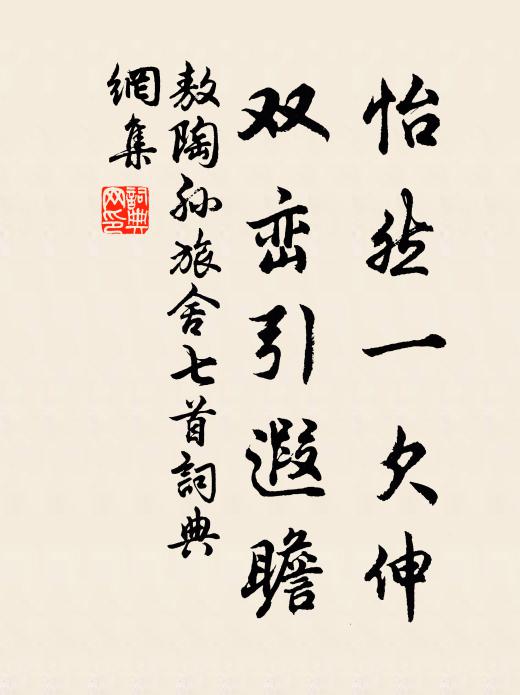 怡然一欠伸
双峦引遐瞻
敖陶孙旅舍七首詞典
網集
詞典網印